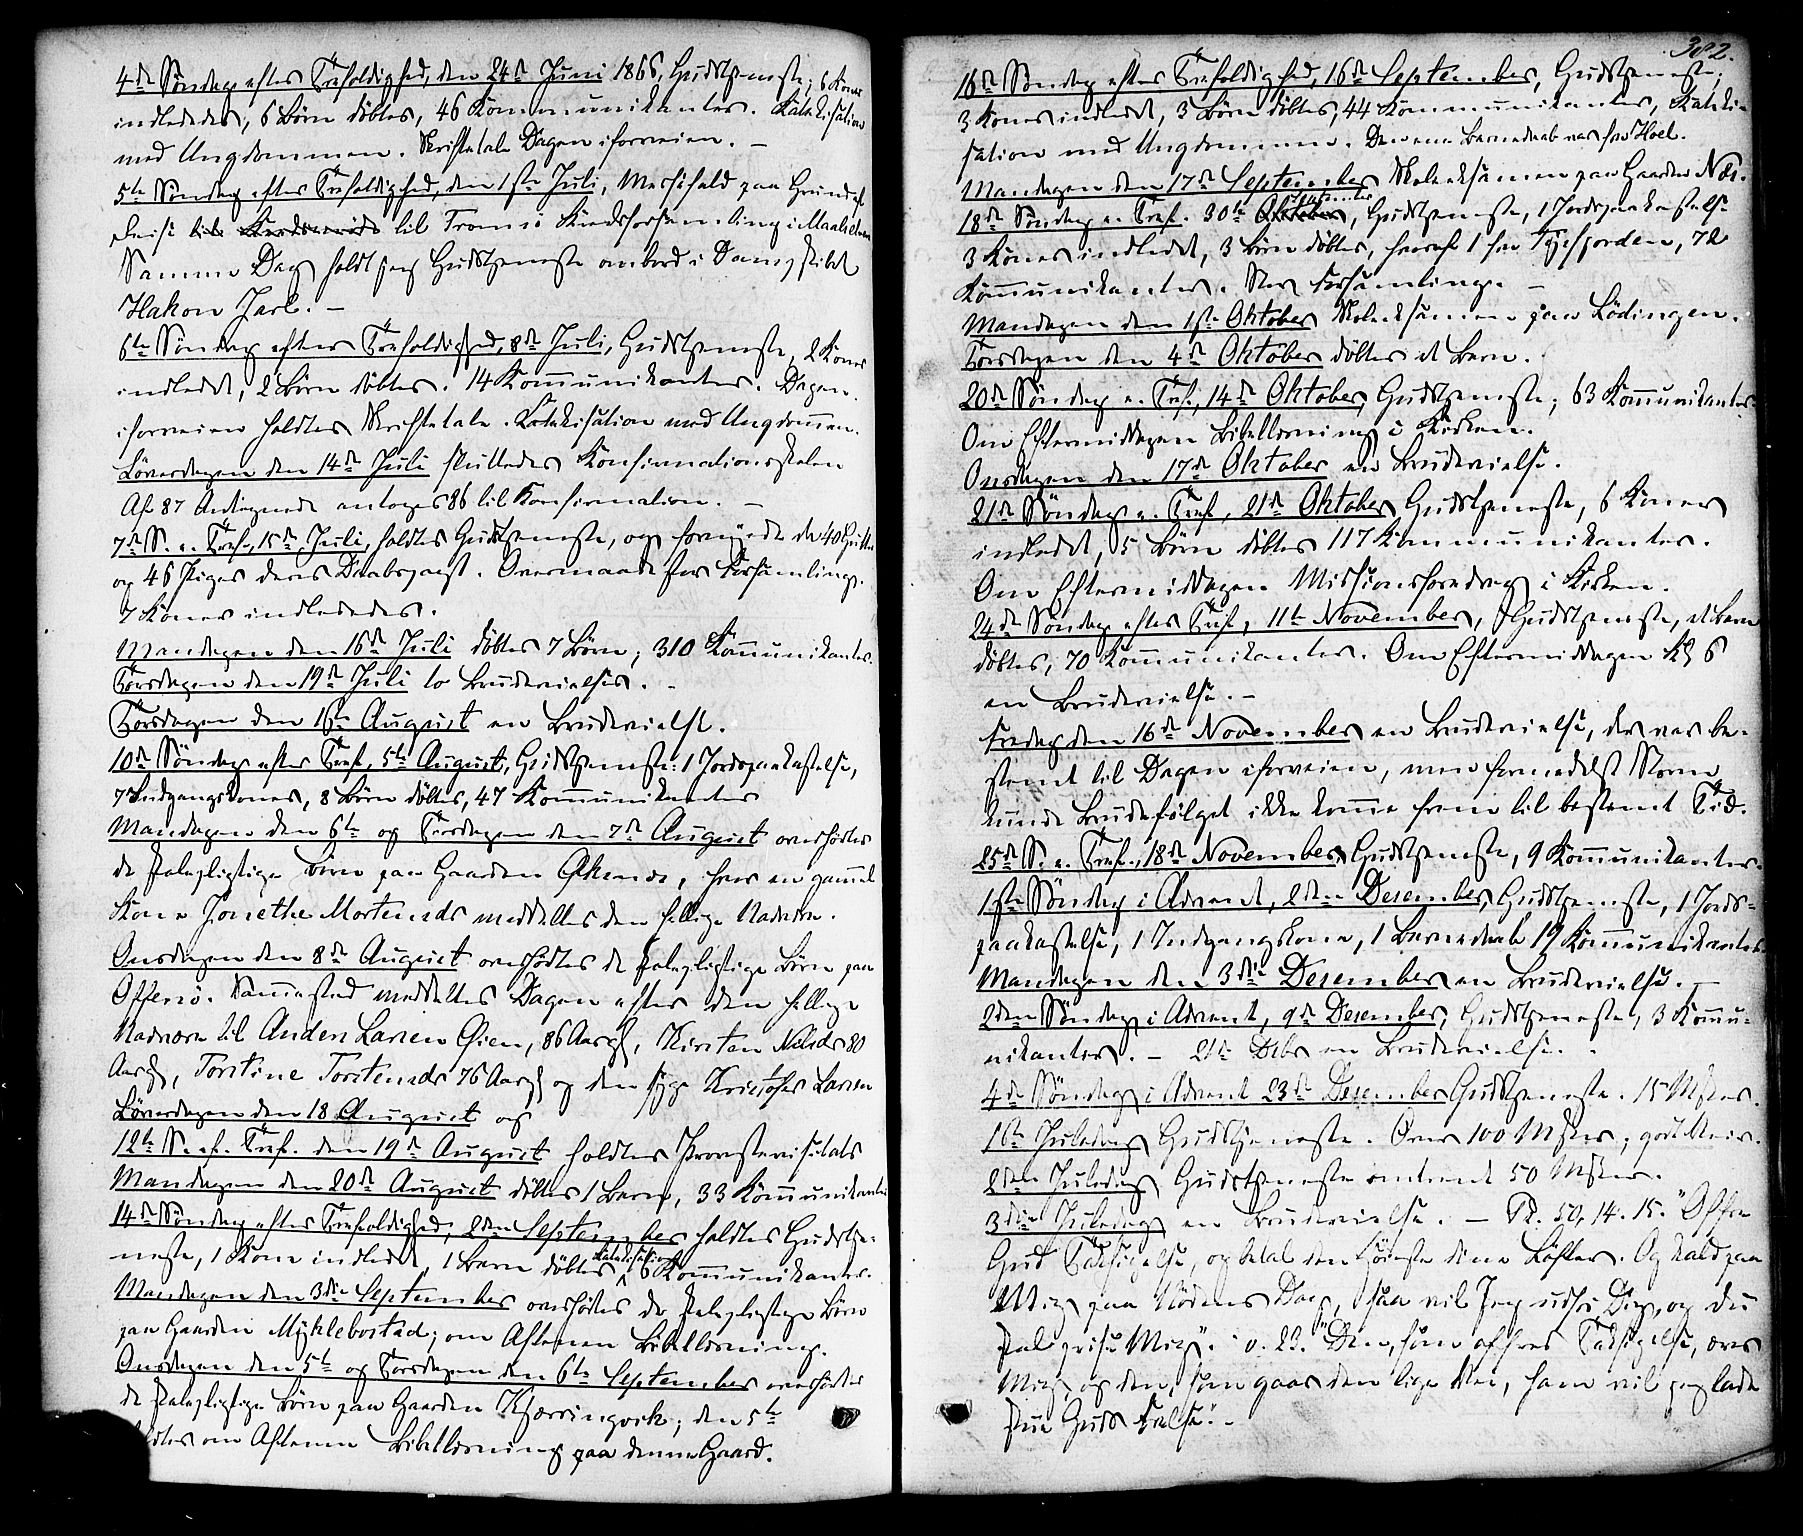 4de Søndag efter Trefoldighed, den 24de Juni 1866, Gudstjeneste; 6 Koner
indlededes, 6 Børn døbtes, 46 Kommunikanter. Katekisation
med Ungdommen. Skriftetale Dagen iforveien. —
5te Søndag efter Trefoldighed, den 1ste Juli, Messefald paa Grund af
Reise til til Tromsø Stiftsforsamling i Maalselven
Samme Dag holdt jeg Gudstjeneste ombord i Dampskibet
Hakon Jarl. —
6te Søndag efter Trefoldighed, 8de Juli, Gudstjeneste, 2 Koner
indledet, 2 Børn døbtes. 14 Kommunikanter. Dagen
iforveien holdtes Skriftetale. Katekisation med Ungdommen.
Løverdagen den 14de Juli sluttedes Konfirmationsskolen
Af 87 Antegnede antoges 86 til Konfirmation. —
7de S. e. Tref., 15de Juli, holdtes Gudstjeneste, og fornyede de 40 Gutter
og 46 Piger deres Daabspagt. Overmaade stor Forsamling.
7 Koner indlededes.
Mandagen den 16de Juli døbtes 7 Børn; 310 Kommunikanter.
Torsdagen den 19de Juli to Brudevielser. —
Torsdagen den August en Brudevielse.
10de Søndag efter Tref., 5te August, Gudstjeneste: 1 Jordpaakastelse,
7 Indgangskoner, 8 Børn døbtes, 47 Kommunikanter
Mandagen den 6te og Tirsdagen den 7de August overhørtes
de skolepligtige Børn paa Gaarden , hvor en gammel
Kone Jonethe Mortensds meddeltes den hellige Nadvere.
Onsdagen den 8de August overhørtes de skolepligtige Børn paa
Offersø. Sammested meddeltes Dagen efter den hellige
Nadvere til Anders Larsen Øien, 86 Aar gl, Kirsten Nilsds 80
Aar gl, Torstine Torstensds 76 Aar gl og den syge Kristofer Larsen
Løverdagen den 18 August og
12te S. ef. Tref. den 19de August holdtes Provstevisitats
Mandagen den 20de August døbtes 1 Barn, 33 Kommunikanter
14de Søndag efter Trefoldighed, 2den September holdtes Gudstje-
neste, 1 Kone indledet, 1 Barn døbtes, Katekisation 6 Kommunikanter.
Mandagen den 3die September overhørtes de skolepligtige Børn
paa Gaarden Myklebostad; om Aftenen Bibellæsning.
Onsdagen den 5te og Torsdagen den 6te September overhørtes
de skolepligtige Børn paa Gaarden Kjærringvik; den 5te
holdtes om Aftenen Bibellæsning paa denne Gaard.
382.
16de Søndag efter Trefoldighed, 16de September, Gudstjeneste;
3 Koner indledet, 3 Børn døbtes, 44 Kommunikanter, Kateki-
sation med Ungdommen. Den ene Barnedaab var fra Hoel.
Mandagen den 17de September Skoleeksamen paa Gaarden Næs.
18de Søndag e. Tref. 30te Oktober September, Gudstjeneste, 1 Jordpaakastelse
3 Koner indledet, 3 Børn døbtes, hvoraf 1 fra Tysfjorden, 72
Kommunikanter. Stor Forsamling. —
Mandagen den 1ste Oktober Skoleeksamen paa Lödingen.
Torsdagen den 4de Oktober døbtes et Barn.
20de Søndag e. Tref., 14de Oktober, Gudstjeneste, 63 Kommunikanter.
Om Eftermiddagen Bibellæsning i Kirken.
Onsdagen den 17de Oktober en Brudevielse.
21de Søndag e. Tref., 21de Oktober Gudstjeneste, 6 Koner
indledet, 5 Børn døbtes 117 Kommunikanter.
Om Eftermiddagen Missionsforedrag i Kirken.
24de Søndag efter Tref., 11te November, Gudstjeneste, et Barn
døbtes, 70 Kommunikanter. Om Eftermiddagen Kl 6
en Brudevielse. —
Fredag den 16de November en Brudevielse, der var be-
stemt til Dagen iforveien, men formedelst Storm
kunde Brudefølget ikke komme frem til bestemt Tid.
25de S. e. Tref., 18de November, Gudstjeneste, 9 Kommunikanter.
1ste Søndag i Advent, 2den Desember, Gudstjeneste, 1 Jords-
paakastelse, 1 Indgangskone, 1 Barnedaab 19 Kommunikanter
Mandagen den 3die Desember en Brudevielse. —
2den Søndag i Advent, 9de Desember, Gudstjeneste, 3 Kommu-
nikanter. — 21de Debr en Brudevielse.
4de Søndag i Advent 23de Desember Gudstjeneste. 15 Mskr.
1ste Juledag Gudstjeneste. Over 100 Mskr; godt Veir.
2den Juledag Gudstjeneste omtrent 50 Mskr.
3die Juledag en Brudevielse. — Ps. 50, 14. 15. "Offre
Gud Taksigelse, og betal den Høieste dine Løfter. Og kald paa
Mig paa Nødens Dag, saa vil Jeg udfri Dig, og du
skal prise Mig". v. 23. "Den, som offrer Taksigelse, ærer
Mig og den, som gaar den lige Vei, ham vil jeg lade
see Guds Frelse". —